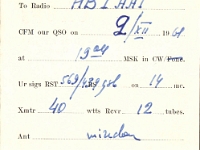 To Radio HB1AAI
CFM our QSO on 2/XII 1961
at 19 04 MSK in CW/Fone.
Ur sigs RST 569/439 gsb on 14 mc.
Xmtr 40 wtts Rcvr 12 tubes.
Ant